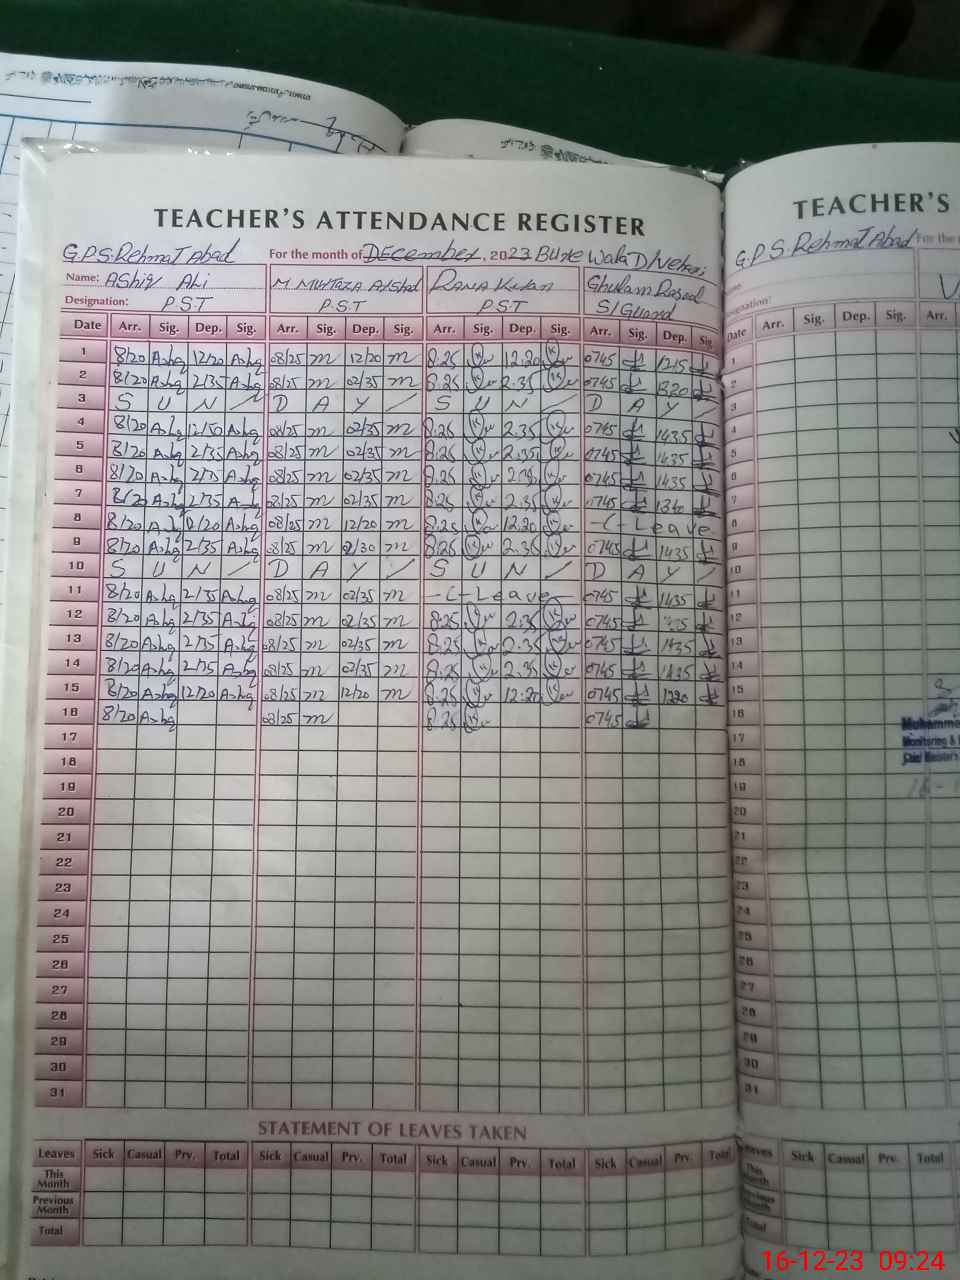 TEACHER'S ATTENDANCE REGISTER
G.P.S. Rehmat Abad For the month of December, 2023
Name: AShiq Ali M Murtaza Arshad RANA Ghulam Rasool
Designation: P.S.T P.S.T P.S.T S/Guard
Date Arr. Sig. Dep. Sig. Arr. Sig. Dep. Sig. Arr. Sig. Dep. Sig. Arr. Sig. Dep. Sig.
1 8/20 Ashq 12/20 Ashq 08/25 m 12/20 m 8.25 12.20 0745 1215
2 8/20 Ashq 2/35 Ashq 08/25 m 02/35 m 8.25 2.35 0745 1320
3 S U N / D A Y / S U N / D A Y /
4 8/20 Ashq 12/50 Ashq 08/25 m 02/35 m 8.25 2.35 0745 1435
5 8/20 Ashq 2/35 Ashq 08/25 m 02/35 m 8.25 2.35 0745 1435
6 8/20 Ashq 2/35 Ashq 08/25 m 02/35 m 8.25 0745 1435
7 8/20 Ashq 2/35 08/25 m 02/35 m 8.25 2.35 0745 1340
8 8/20 Ashq Ashq 08/25 m 12/20 m 8.25 12.20 -C-Leave
9 8/20 Ashq 2/35 Ashq 08/25 m 02/30 m 8.25 2.35 0745 1435
10 S U N / D A Y / S U N / D A Y /
11 8/20 Ashq 2/35 Ashq 08/25 m 02/35 m -C-Leave- 0745 1435
12 8/20 Ashq 2/35 Ashq 08/25 m 02/35 m 8.25 2.35 0745
13 8/20 Ashq 2/35 Ashq 08/25 m 02/35 m 8.25 2.35 0745 1435
14 8/20 Ashq 2/35 Ashq 08/25 m 02/35 m 8.25 2.35 0745 1435
15 8/20 Ashq 12/20 Ashq 08/25 m 12/20 m 8.25 12.20 0745 1220
16 8/20 Ashq 08/25 m 8.25 0745
17
18
19
20
21
22
23
24
25
26
27
28
29
30
31
STATEMENT OF LEAVES TAKEN
Leaves Sick Casual Prv. Total Sick Casual Prv. Total Sick Casual Prv. Total Sick Casual Prv. Total
This Month
Previous Month
Total
TEACHER'S
G.P.S. Rehmat Abad For the
Date Arr. Sig. Dep. Sig. Arr.
1
2
3
4
5
6
7
8
9
10
11
12
13
14
15
16
17
18
19
20
21
22
23
24
25
26
27
28
29
30
31
Monitoring &
Sick Casual Prv. Total
This Month
Total
16-12-23 09:24